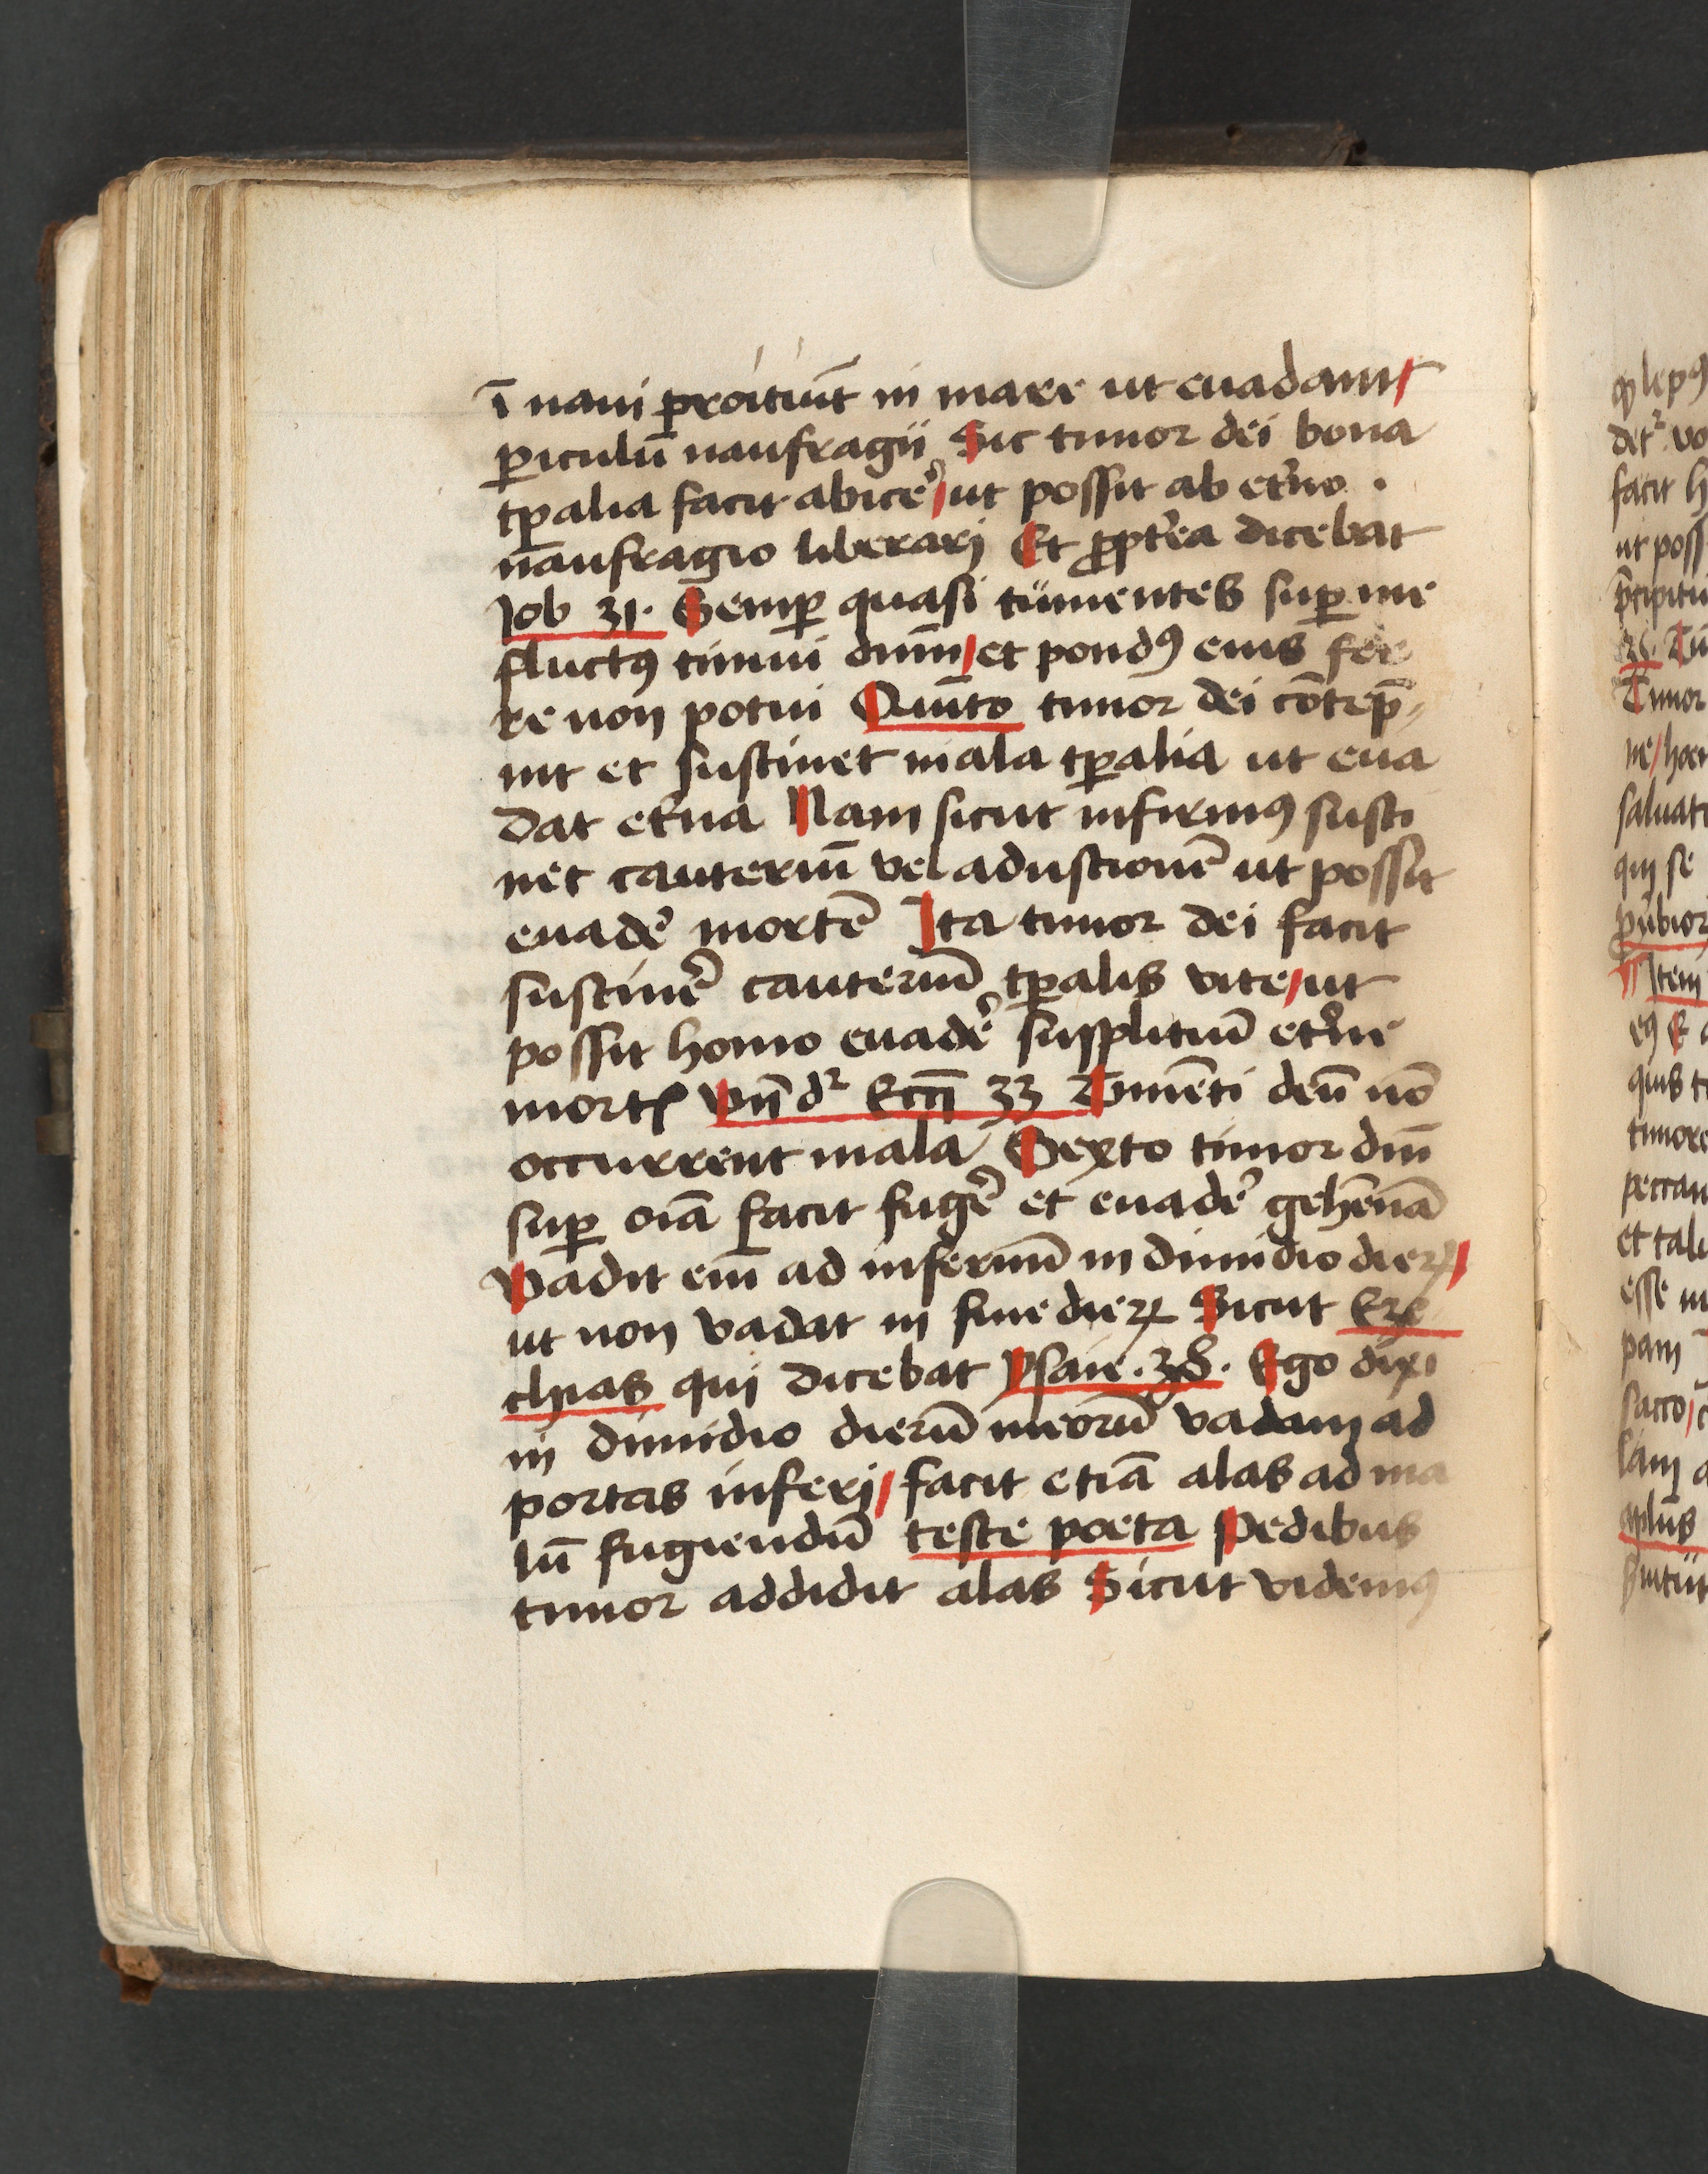 ī naui proiciūt in mare ut euadant
ꝑiculū naufragii Sic timor dei bona
tꝑalia facit abice᷑ / ut possit ab et᷑no .
naufragio liberarj Et ꝓpt᷑ea dicebat
Job 31. Semꝑ quasi tümentes suꝑ me
fluctꝰ timui dnm̄ / et pondꝰ eius fer
re non potui Quīto timor dei cōtēp̄
nit et sustinet mala tꝑalia ut eua
dat et᷑na Nam sicut infirmꝰ susti
net cauteriū vel adustionē ut possit
euade᷑ mortē Ita timor dei facit
sustine᷑ cauteriū tꝑalis vite / ut
possit homo euade᷑ supplitiū et᷑ne
mortꝭ Vn̄ dꝛ Ecci̅ 33 Timēti deū nō
occurrent mala Sexto timor dni̅
suꝑ oīa facit fuge᷑ et euade᷑ gehēnā
Vadit eni̅ ad infernū in dimidio dieꝝ /
ut non vadat in fine dieꝝ Sicut Eze
chias qui dicebat Ysaie . 38 . Ego dixi
in dimidio dierū meorū vadam ad
portas inferj / facit etiā alas ad ma
lū fugiendū teste poeta Pedibus
timor addidit alas Sicut videmꝰ